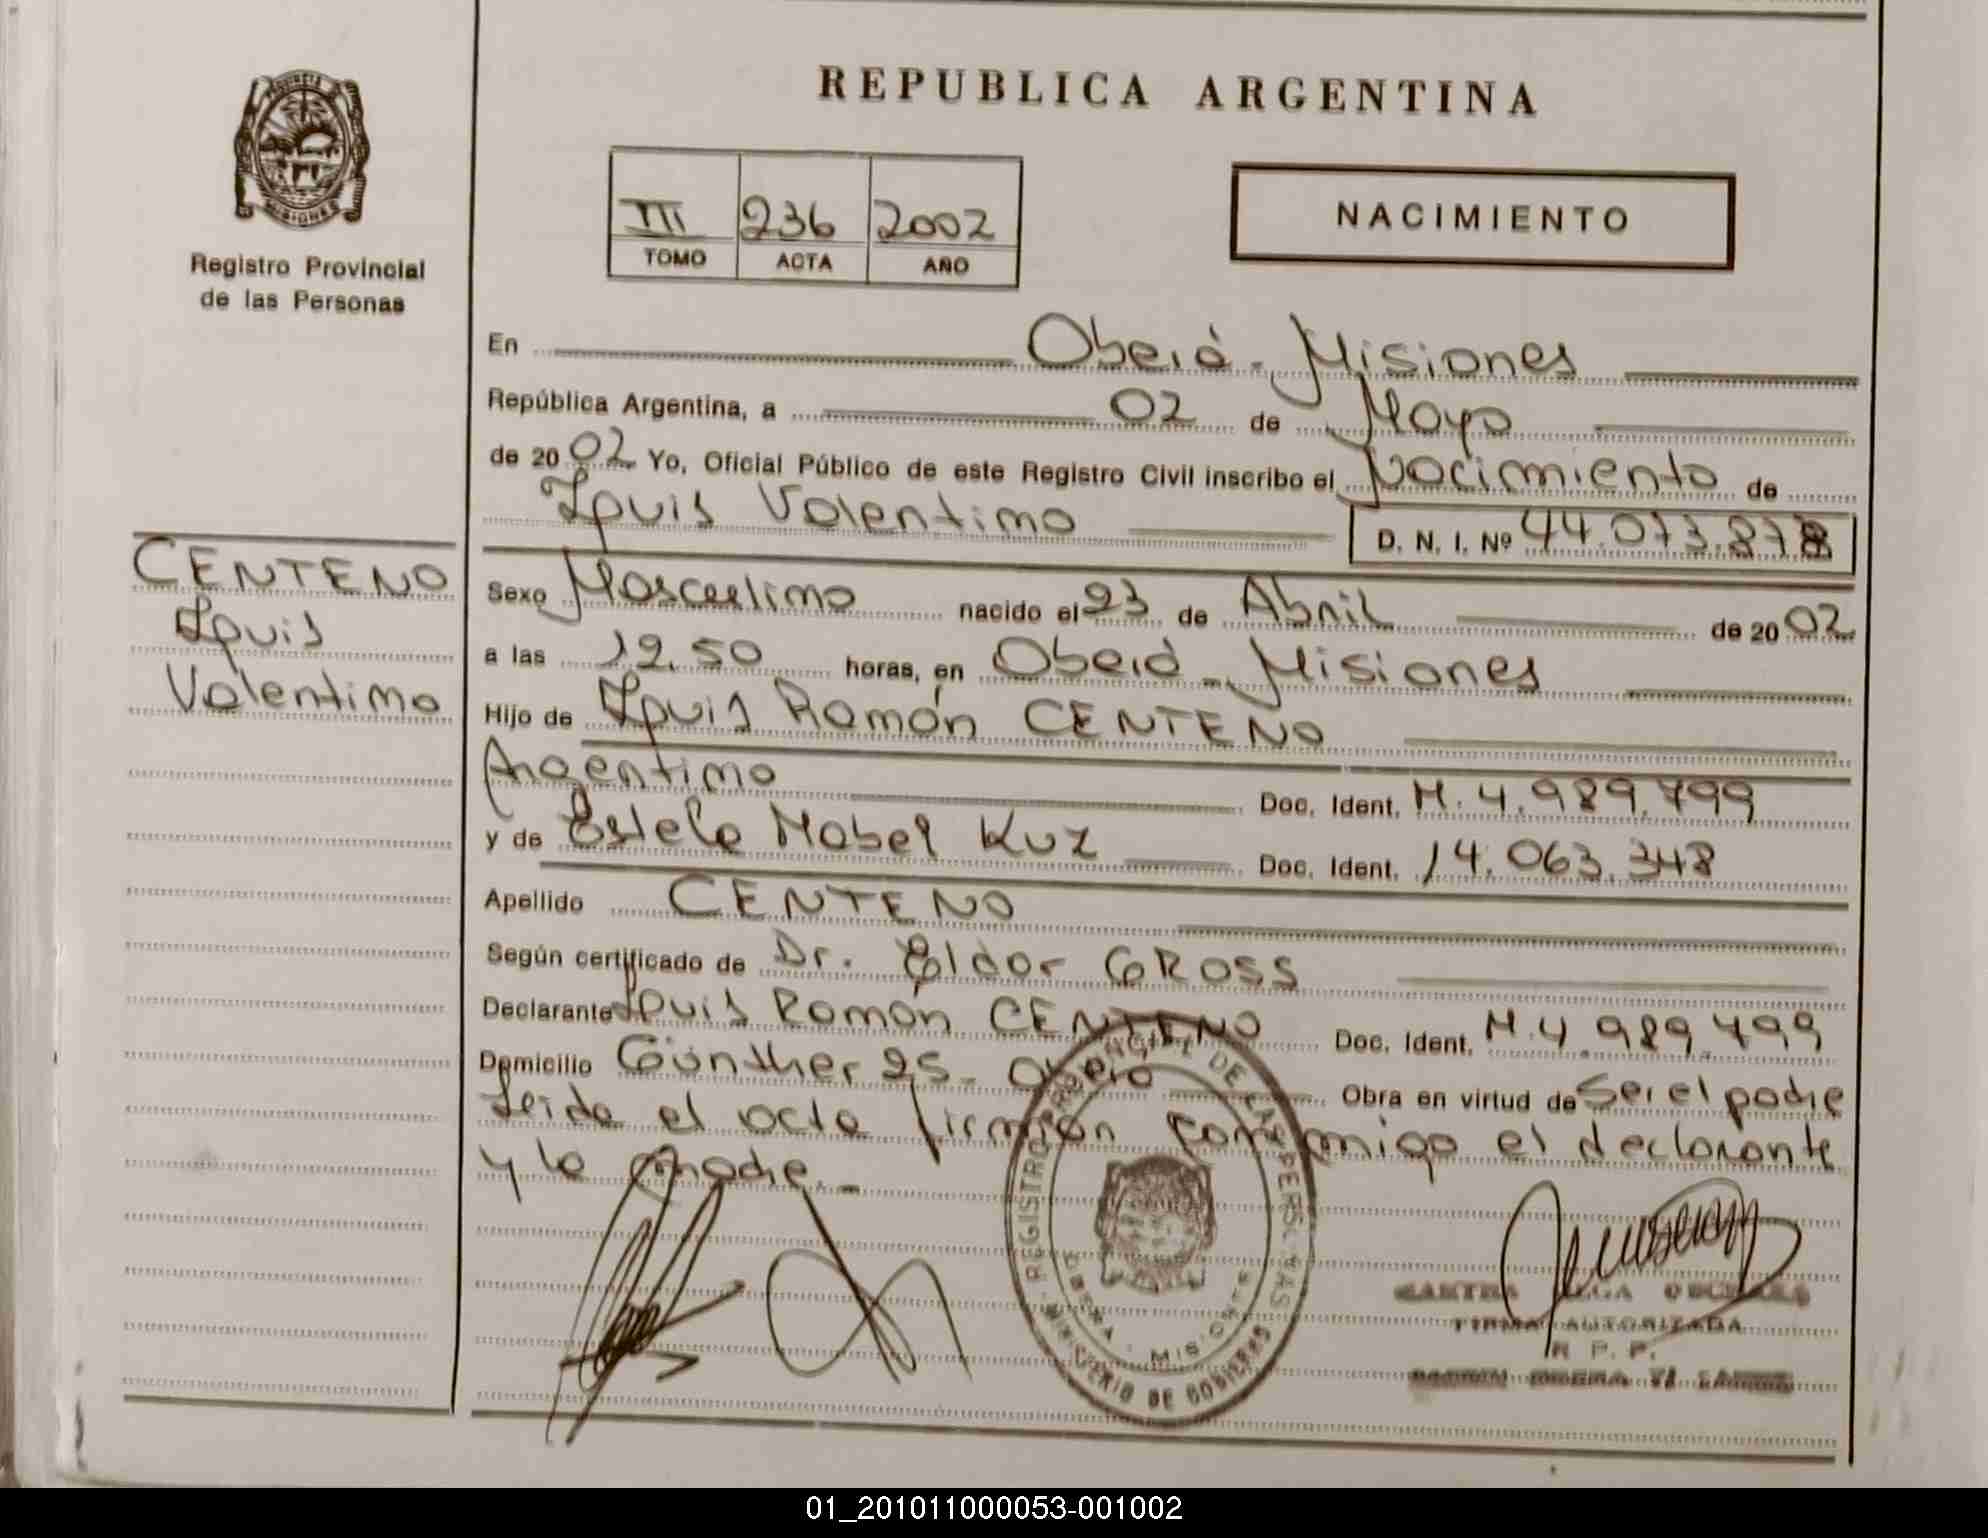 REPUBLICA ARGENTINA
PROVINCIA DE MISIONES
Registro Provincial
de las Personas
III 236 2002
TOMO ACTA AÑO
NACIMIENTO
En Oberá - Misiones
República Argentina, a 02 de Mayo
de 2002 Yo, Oficial Público de este Registro Civil inscribo el Nacimiento de
Luis Valentino
D. N. I. Nº 44.073.878
CENTENO
Luis
Valentino
Sexo Masculino nacido el 23 de Abril de 2002
a las 12.50 horas, en Oberá - Misiones
Hijo de Luis Ramón CENTENO
Argentino Doc. Ident. M. 4.989.799
y de Estela Mabel Kuz Doc. Ident. 14.063.348
Apellido CENTENO
Según certificado de Dr. Eldor GROSS
Declarante Luis Ramón CENTENO Doc. Ident. M. 4.989.799
Domicilio Günther 25 - Oberá Obra en virtud de Ser el padre
Leida el acta firman conmigo el declarante
y la madre. -
REGISTRO PROVINCIAL DE LAS PERSONAS
OBERA - MISIONES
MINISTERIO DE GOBIERNO
FIRMA AUTORIZADA
R. P. P.
01_201011000053-001002